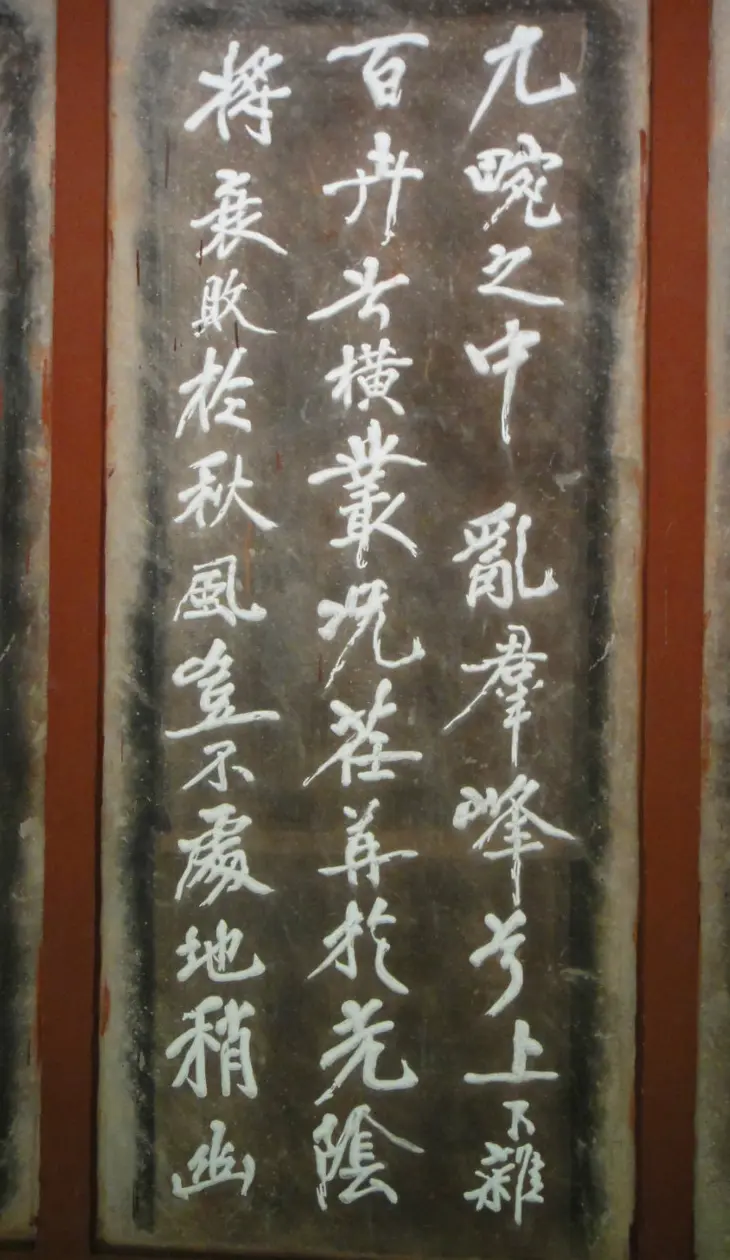 九畹之中亂羣峰兮上下雜
百卉兮横叢况荏苒於光陰
將衰敗於秋風豈不處地稍幽